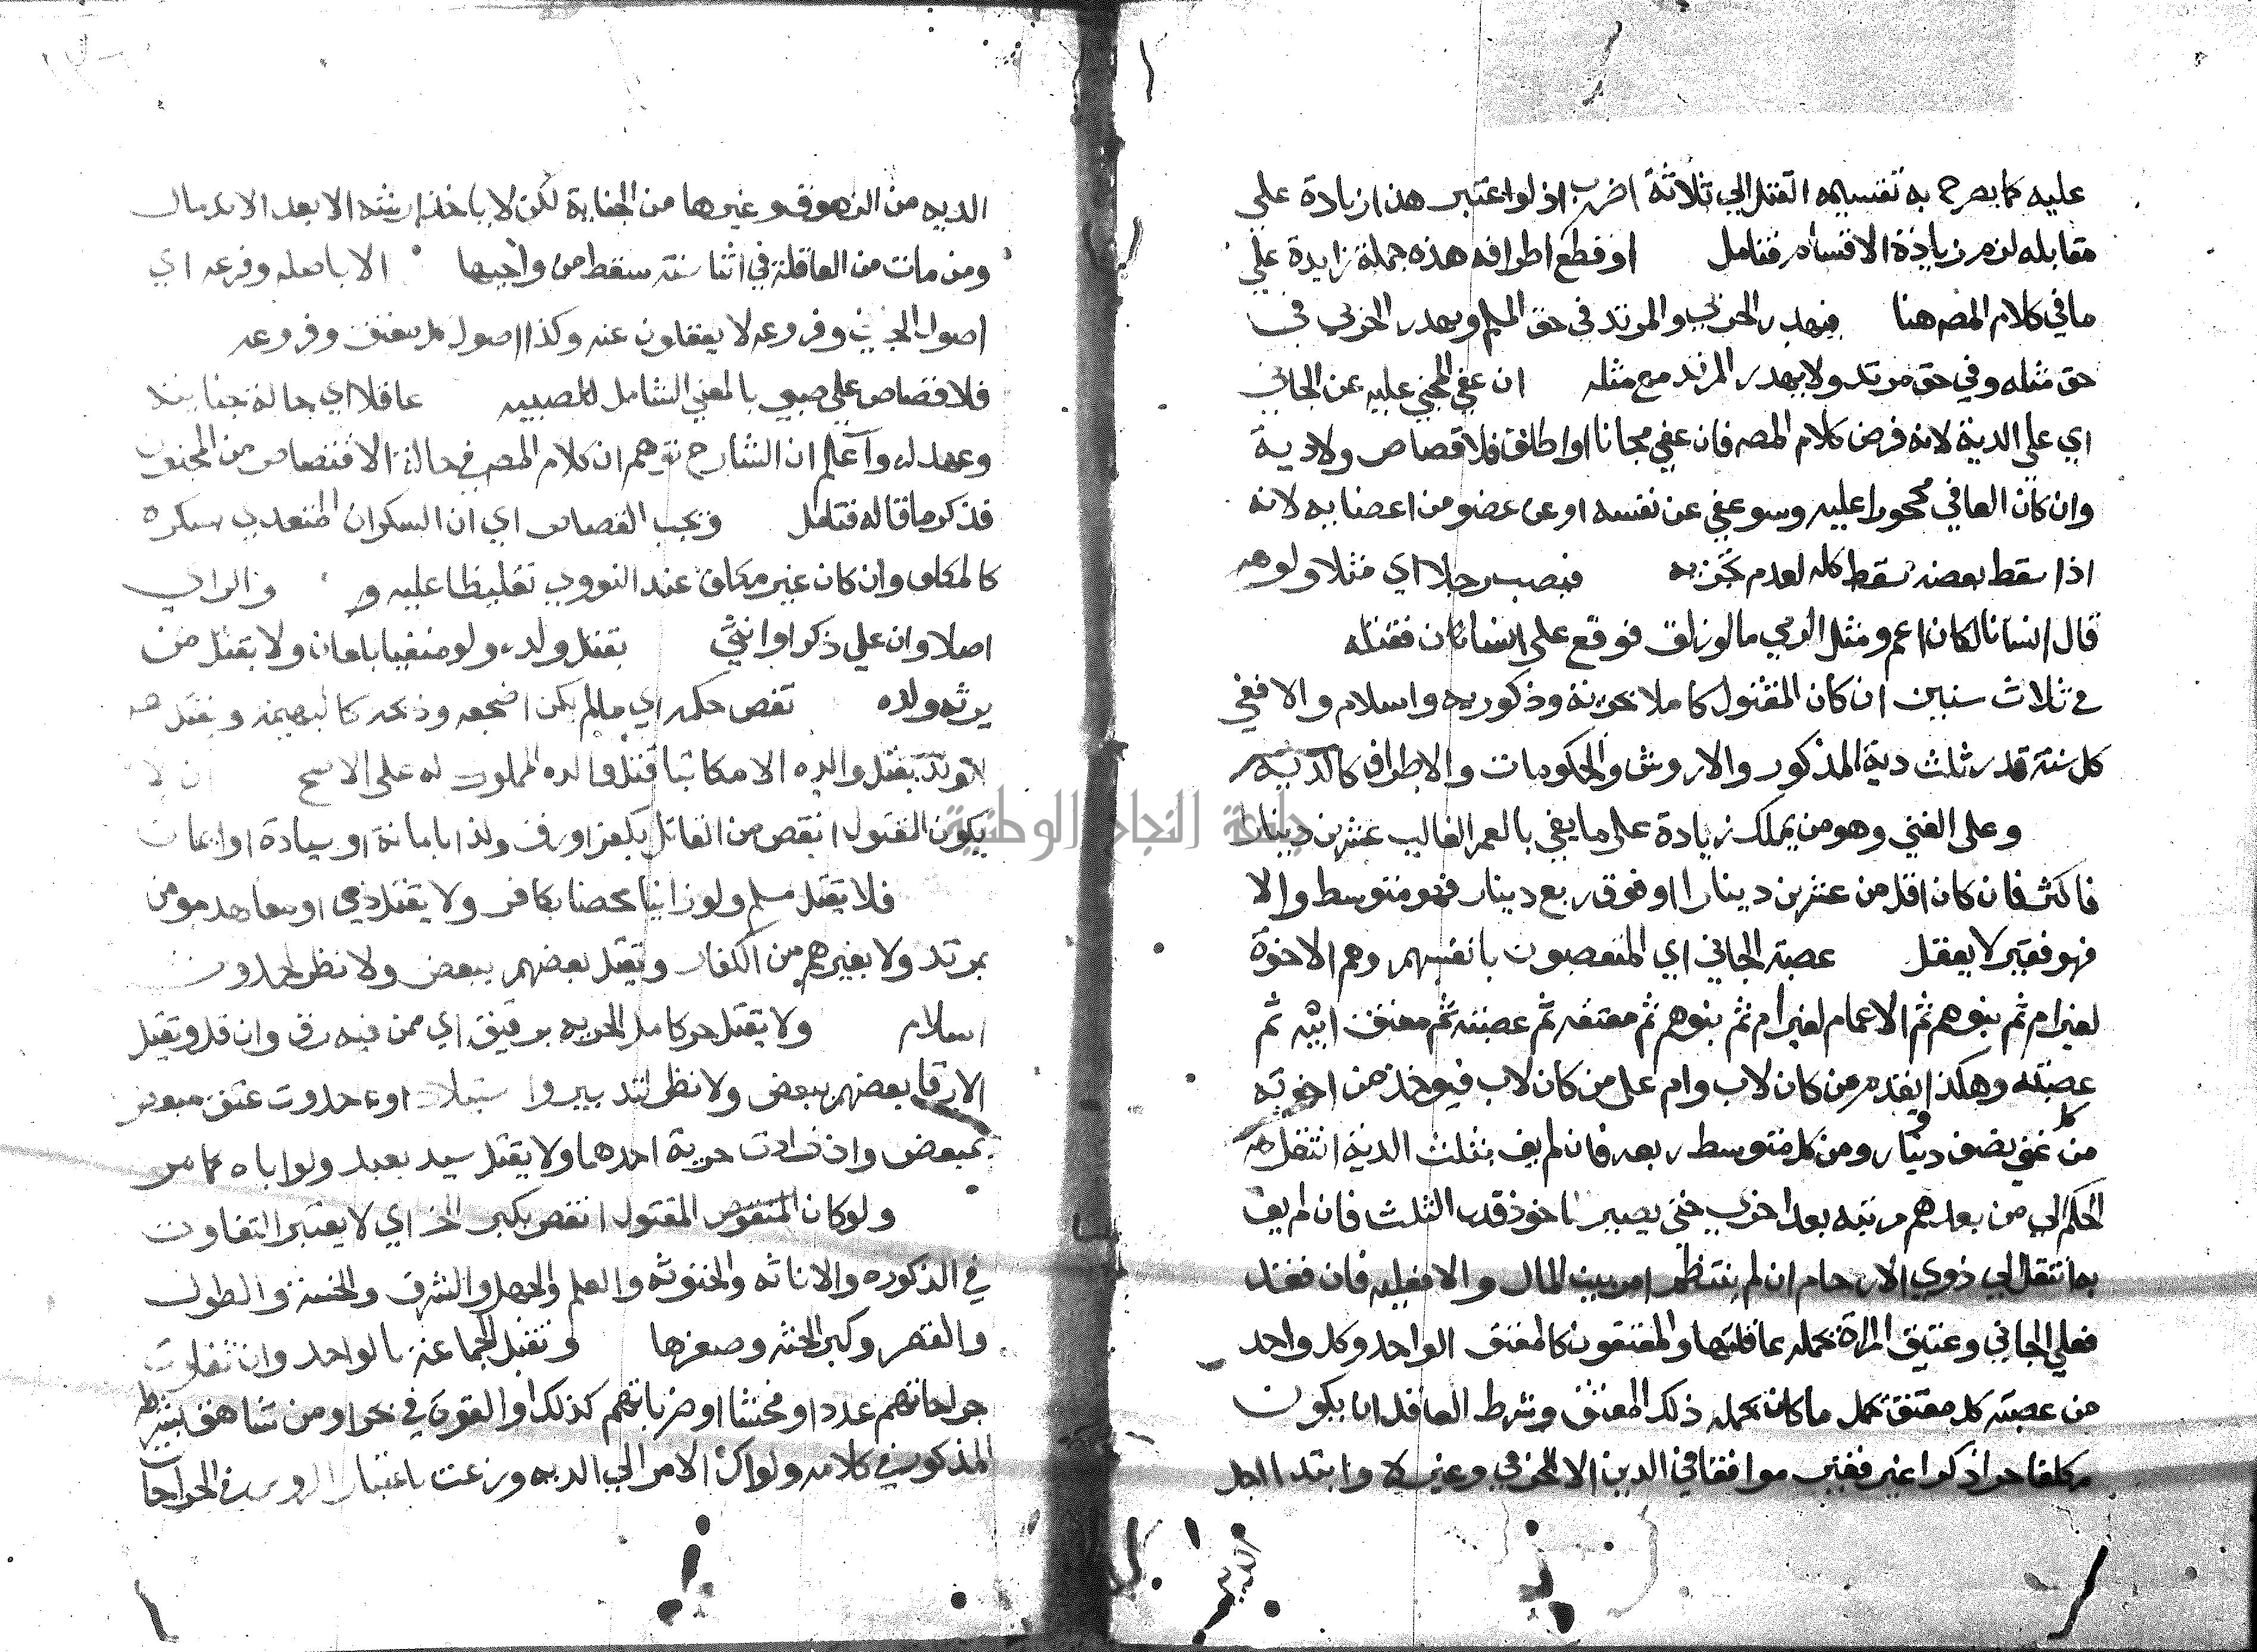 عليه كما يصرح به تقسيمه القتل الي ثلاثة اضرب اذ لو اعتبر هذا زيادة علي
مقابله لزم زيادة الاقسام فتامل او قطع اطرافه هذه جملة زايدة علي
ما في كلام المصه هنا فيهدر الحربي والمرتد في حق المسلم ويهدر الحربي في
حق مثله وفي حق مرتد ولا يهدر المرتد مع مثله ان عفي المجني عليه عن الجاني
اي علي الدية لانه فرض كلام المصه فان عفي مجانا او اطلق فلا قصاص ولا دية
وان كان العافي محجورا عليه وسو عفي عن نفسه او عن عضو من اعضايه لانه
اذا سقط بعضه سقط كله لعدم تجزيه فيصيب رجلا اي مثلا ولو
قال انسانا لكان اعم ومثل الرمي ما لو زلق فوقع علي انسان فقتله
في ثلاث سنين ان كان المقتول كاملا بحرية وذكورية واسلام والا ففي
كل سنة قدر ثلث دية المذكور والاروش والحكومات والاطراف كالدية
وعلى الغني وهو من يملك زيادة على ما يفي بالعمر الغالب عشرين دينارا
فاكثر فان كان اقل من عشرين دينارا او فوق ربع دينار فهو متوسط والا
فهو فقير لا يعقل عصبة الجاني اي المتعصبون بانفسهم وهم الاخوة
لغير ام ثم بنوهم ثم الاعمام لغير ام ثم بنوهم ثم معتقه ثم عصبته ثم معتق ابيه ثم
عصبته وهكذا يقدم من كان لاب وام على من كان لاب فيوخذ من اخوته
من كل غني نصف دينار ومن كل متوسط ربعه فان لم يف بثلث الدية انتقل
الحكم الي من بعدهم مرتبه بعد اخري حتي يصير الماخوذ قدر الثلث فان لم يف
بها انتقل الي ذوي الارحام ان لم ينتظم امر بيت المال والا فعليه فان فقد
فعلي الجاني وعتيق المراة تحمله عاقلتها والمعتقون كالمعتق الواحد وكل واحد
من عصبة كل معتق تحمل ما كان يحمله ذلك المعتق وشرط العاقل ان يكون
مكلفا حرا ذكرا غير فقير موافقا في الدين الا وابتدا اجل
الدية
الديه من الزهوق وغيرها من الجناية لكن لا ياخذ ارشه الا بعد الاندمال
ومن مات من العاقلة في اثنا سنة سقط من واجبها الا باصله وفرعه اي
اصول الجاني وفروعه لا يعقلون عنه وكذا اصول معتق وفروعه
فلا قصاص علي صبي بالمعني الشامل للصبيه عاقلا اي حالة جنايته
وعهد له واعلم ان الشارح توهم ان كلام المصه في حالة الاقتصاص من المجنون
فذكر ما قاله فتامل ويجب القصاص اي ان السكران المتعدي بسكره
كالمكلف وان كان غير مكلف عند النووي تغليظا عليه
اصلا وان علي ذكرا او انثي بقتل ولده ولو منفيا بلعان ولا يقتل من
يرثه ولده نقض حكمه اي ما لم يكن اضجعه وذبحه كالبهيمة
بقتل والده الا مكاتبا قتل والده المملوك له على الاصح ان لا
يكون المقتول انقص من القاتل بكفر او رق وكذا بامانة او سيادة او ايمان
فلا يقتل مسلم ولو زانيا محصنا بكافر ولا يقتل ذمي او معاهد مومن
بمرتد ولا بغيرهم من الكفار ويقتل بعضهم ببعض ولا نظر لحدوث
اسلام ولا يقتل حر كامل الحريه برقيق اي ممن فيه رق وان قل ويقتل
الارقا بعضهم ببعض ولا نظر لتدبير واستيلاد او حدوث عتق مبعض
بمبعض وان زادت حرية احدهما ولا يقتل سيد بعبد ولو اباه كما مر
ولو كان المقتول انقص بكبر الخ اي لا يعتبر التفاوت
في الذكوره والاناثه والخنوثه والعلم والجهل والشرف والخسة والطول
والقصر وكبر الجثه وصغرها وتقتل الجماعة بالواحد وان تفاوتت
جراحاتهم عددا وفحشا او ضرباتهم كذلك او القوة في نحرا ومن شاهق بشرطه
المذكور في كلامه ولو ال الامر الي الديه وزعت باعتبار الروس في الجراحات
جامعة النجاح الوطنية